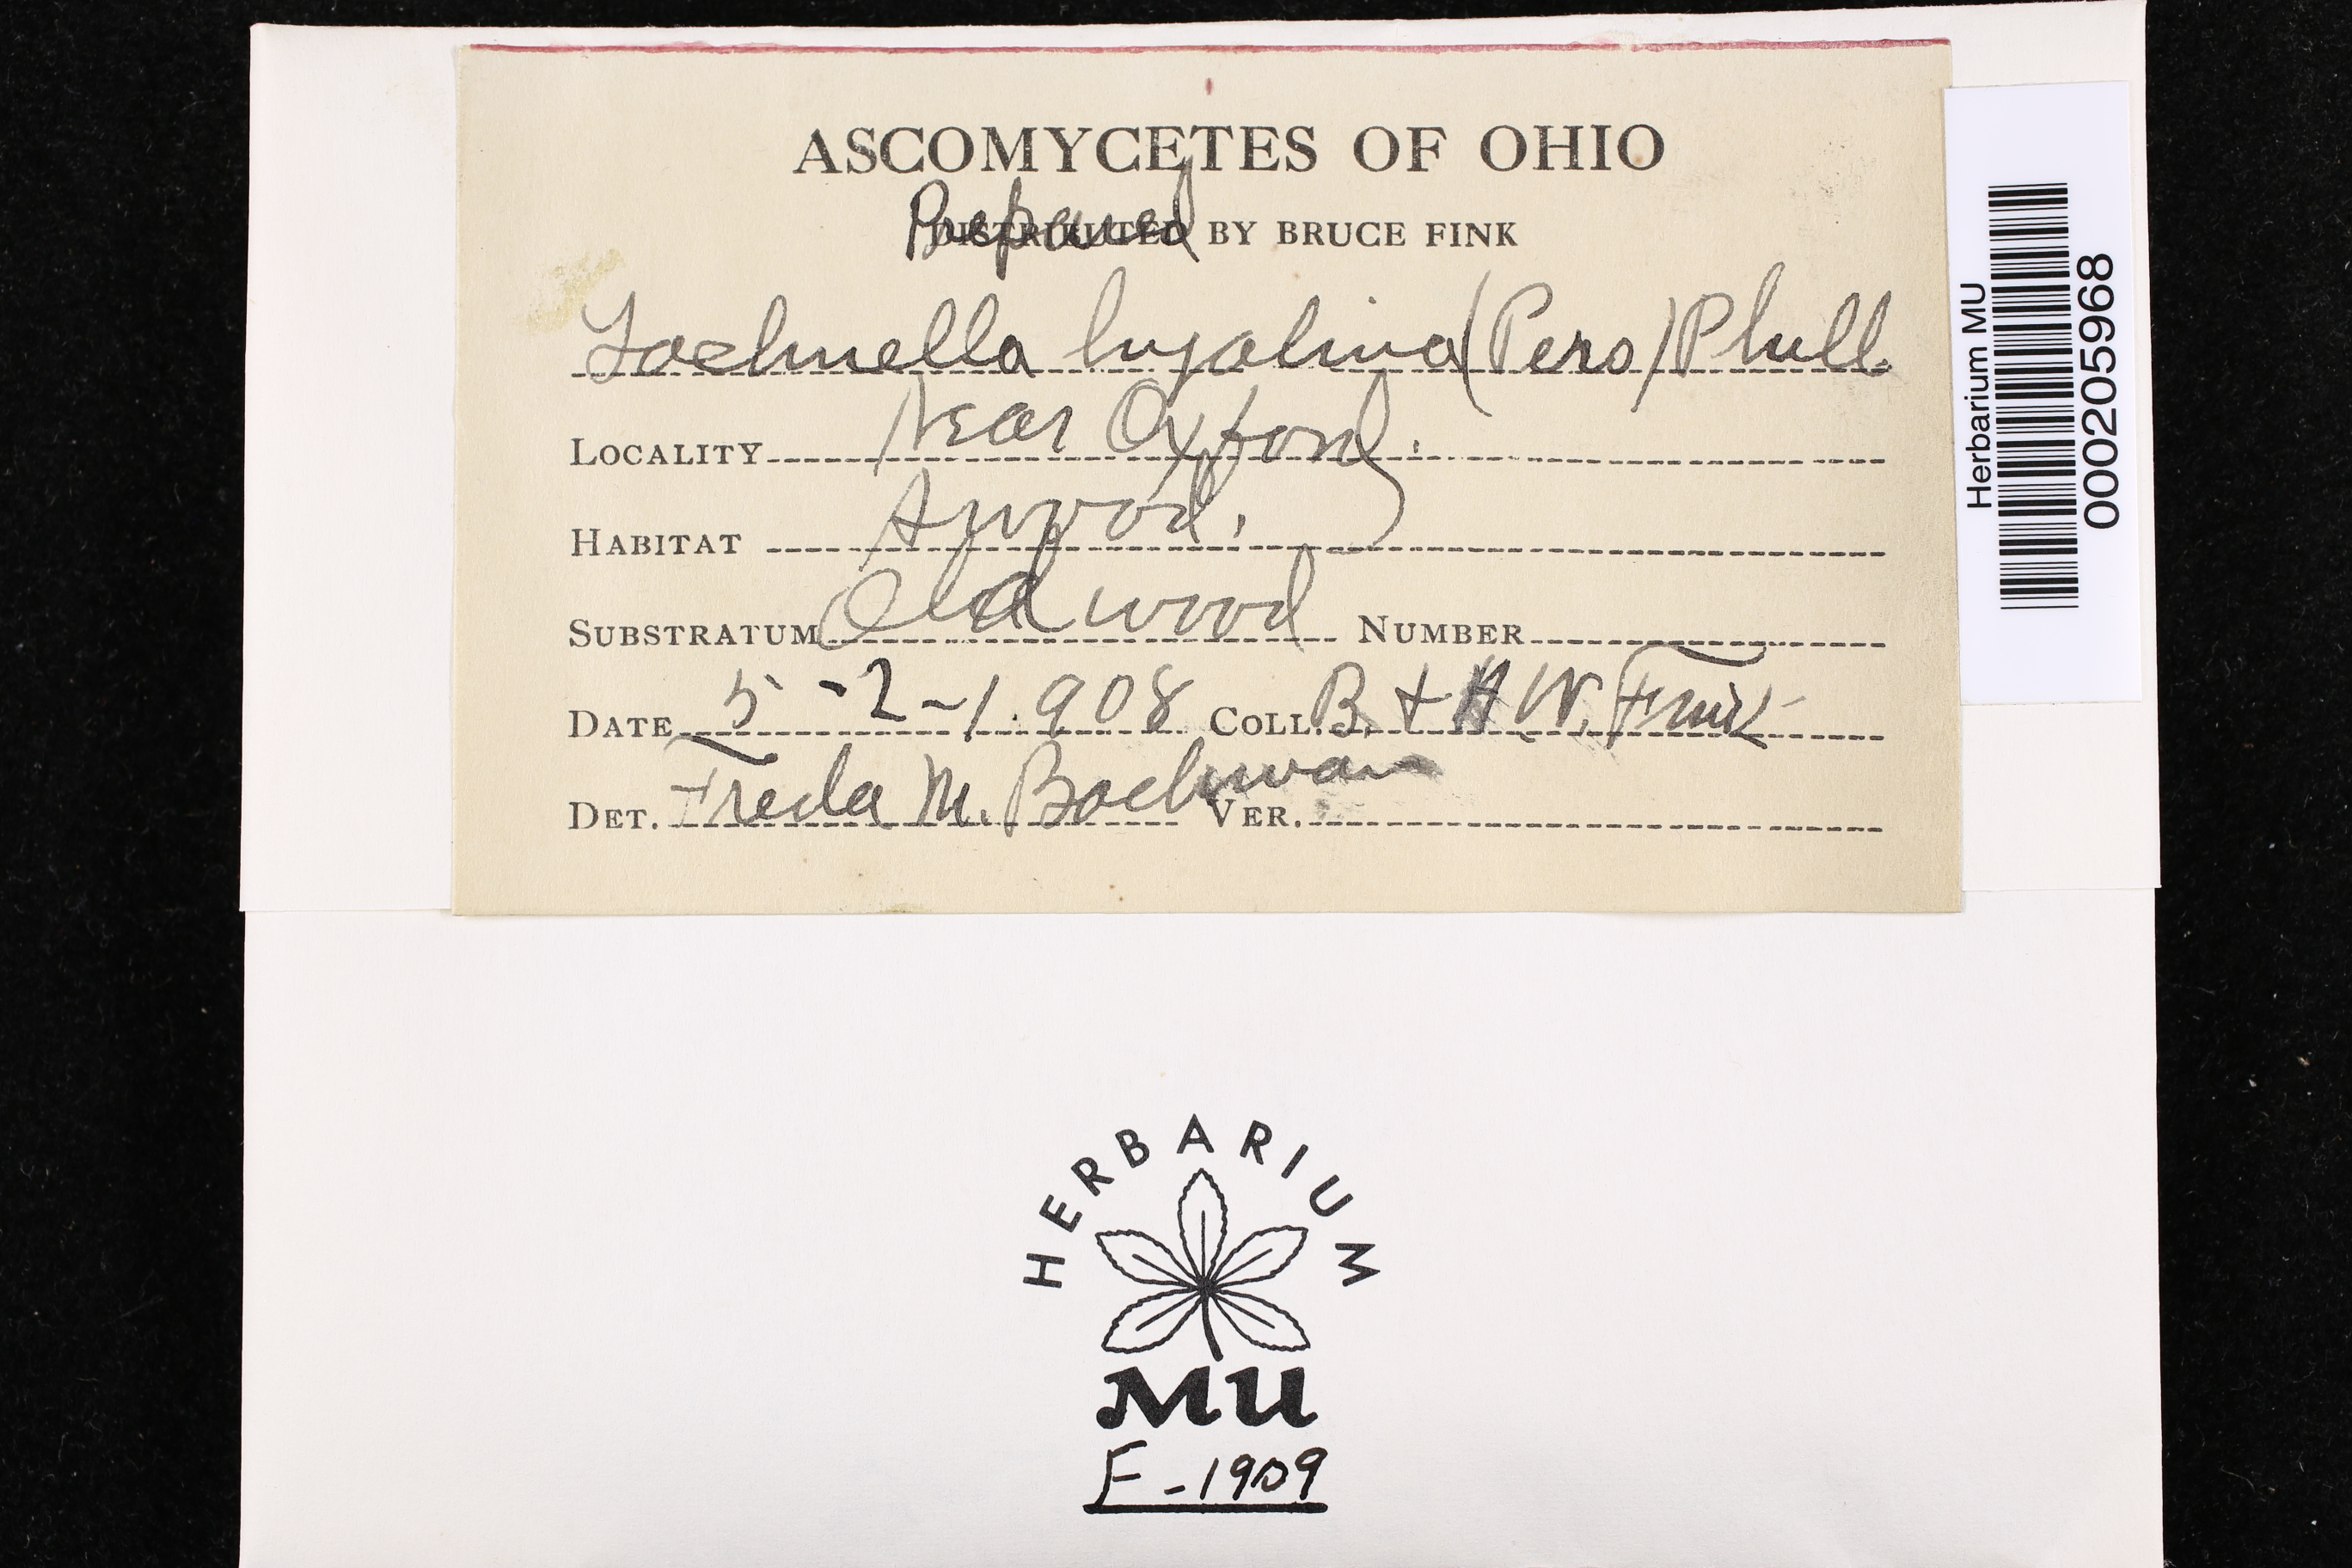 ASCOMYCETES OF OHIO
Prepared BY BRUCE FINK
Lachnella hyalina (Pers) Phill.
LOCALITY Near Oxford.
HABITAT A wood.
SUBSTRATUM Old wood NUMBER
DATE 5-2-1908 COLL. B. + H W. Fink
DET. Freda M. Bachman VER.
Herbarium MU
000205968
HERBARIUM
MU
F-1909